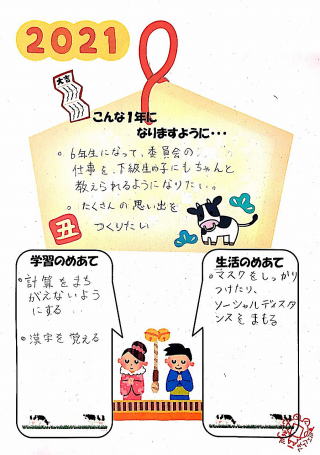 2021
大吉
こんな1年に
なりますように・・・
。6年生になって、委員会の
仕事を、下級生の子にもちゃんと
教えられるようになりたい。
。たくさんの思い出を
つくりたい
丑
学習のめあて
。計算をまち
がえないよう
にする
。漢字を覚える
生活のめあて
。マスクをしっかり
つけたり、
ソーシャルディスタ
ンスをまもる